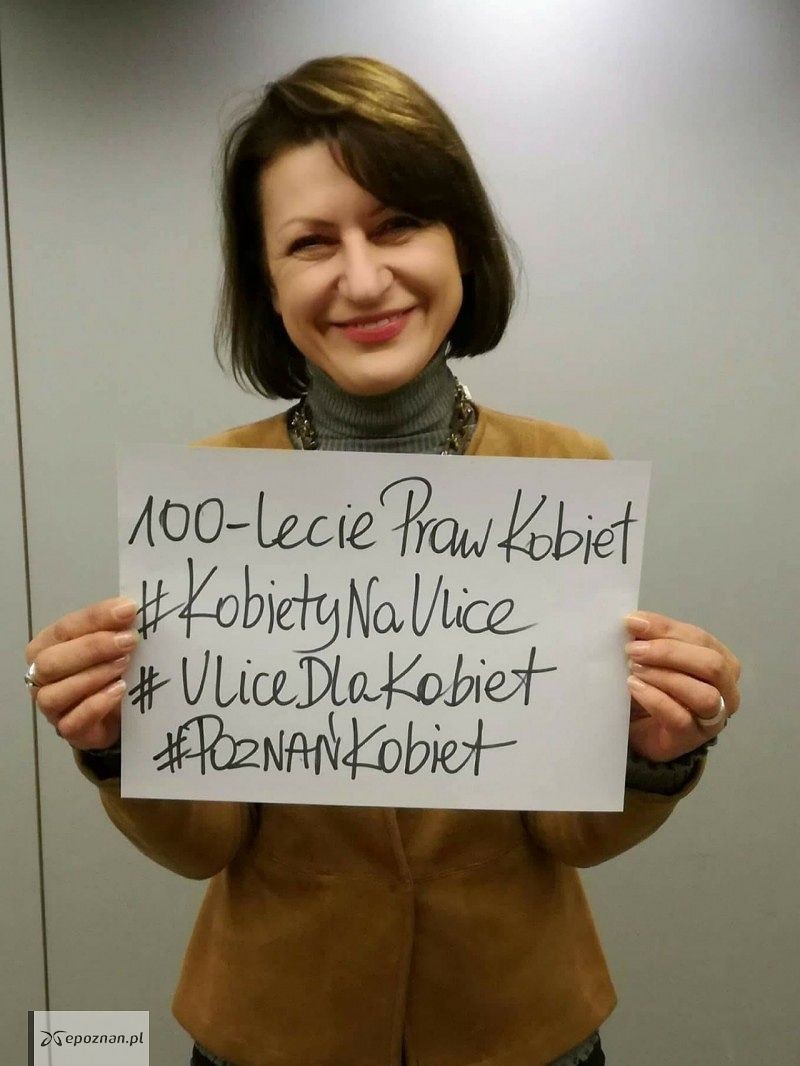 100-lecie Praw Kobiet
#KobietyNaUlice
#UliceDlaKobiet
#POZNAŃKobiet
epoznan.pl